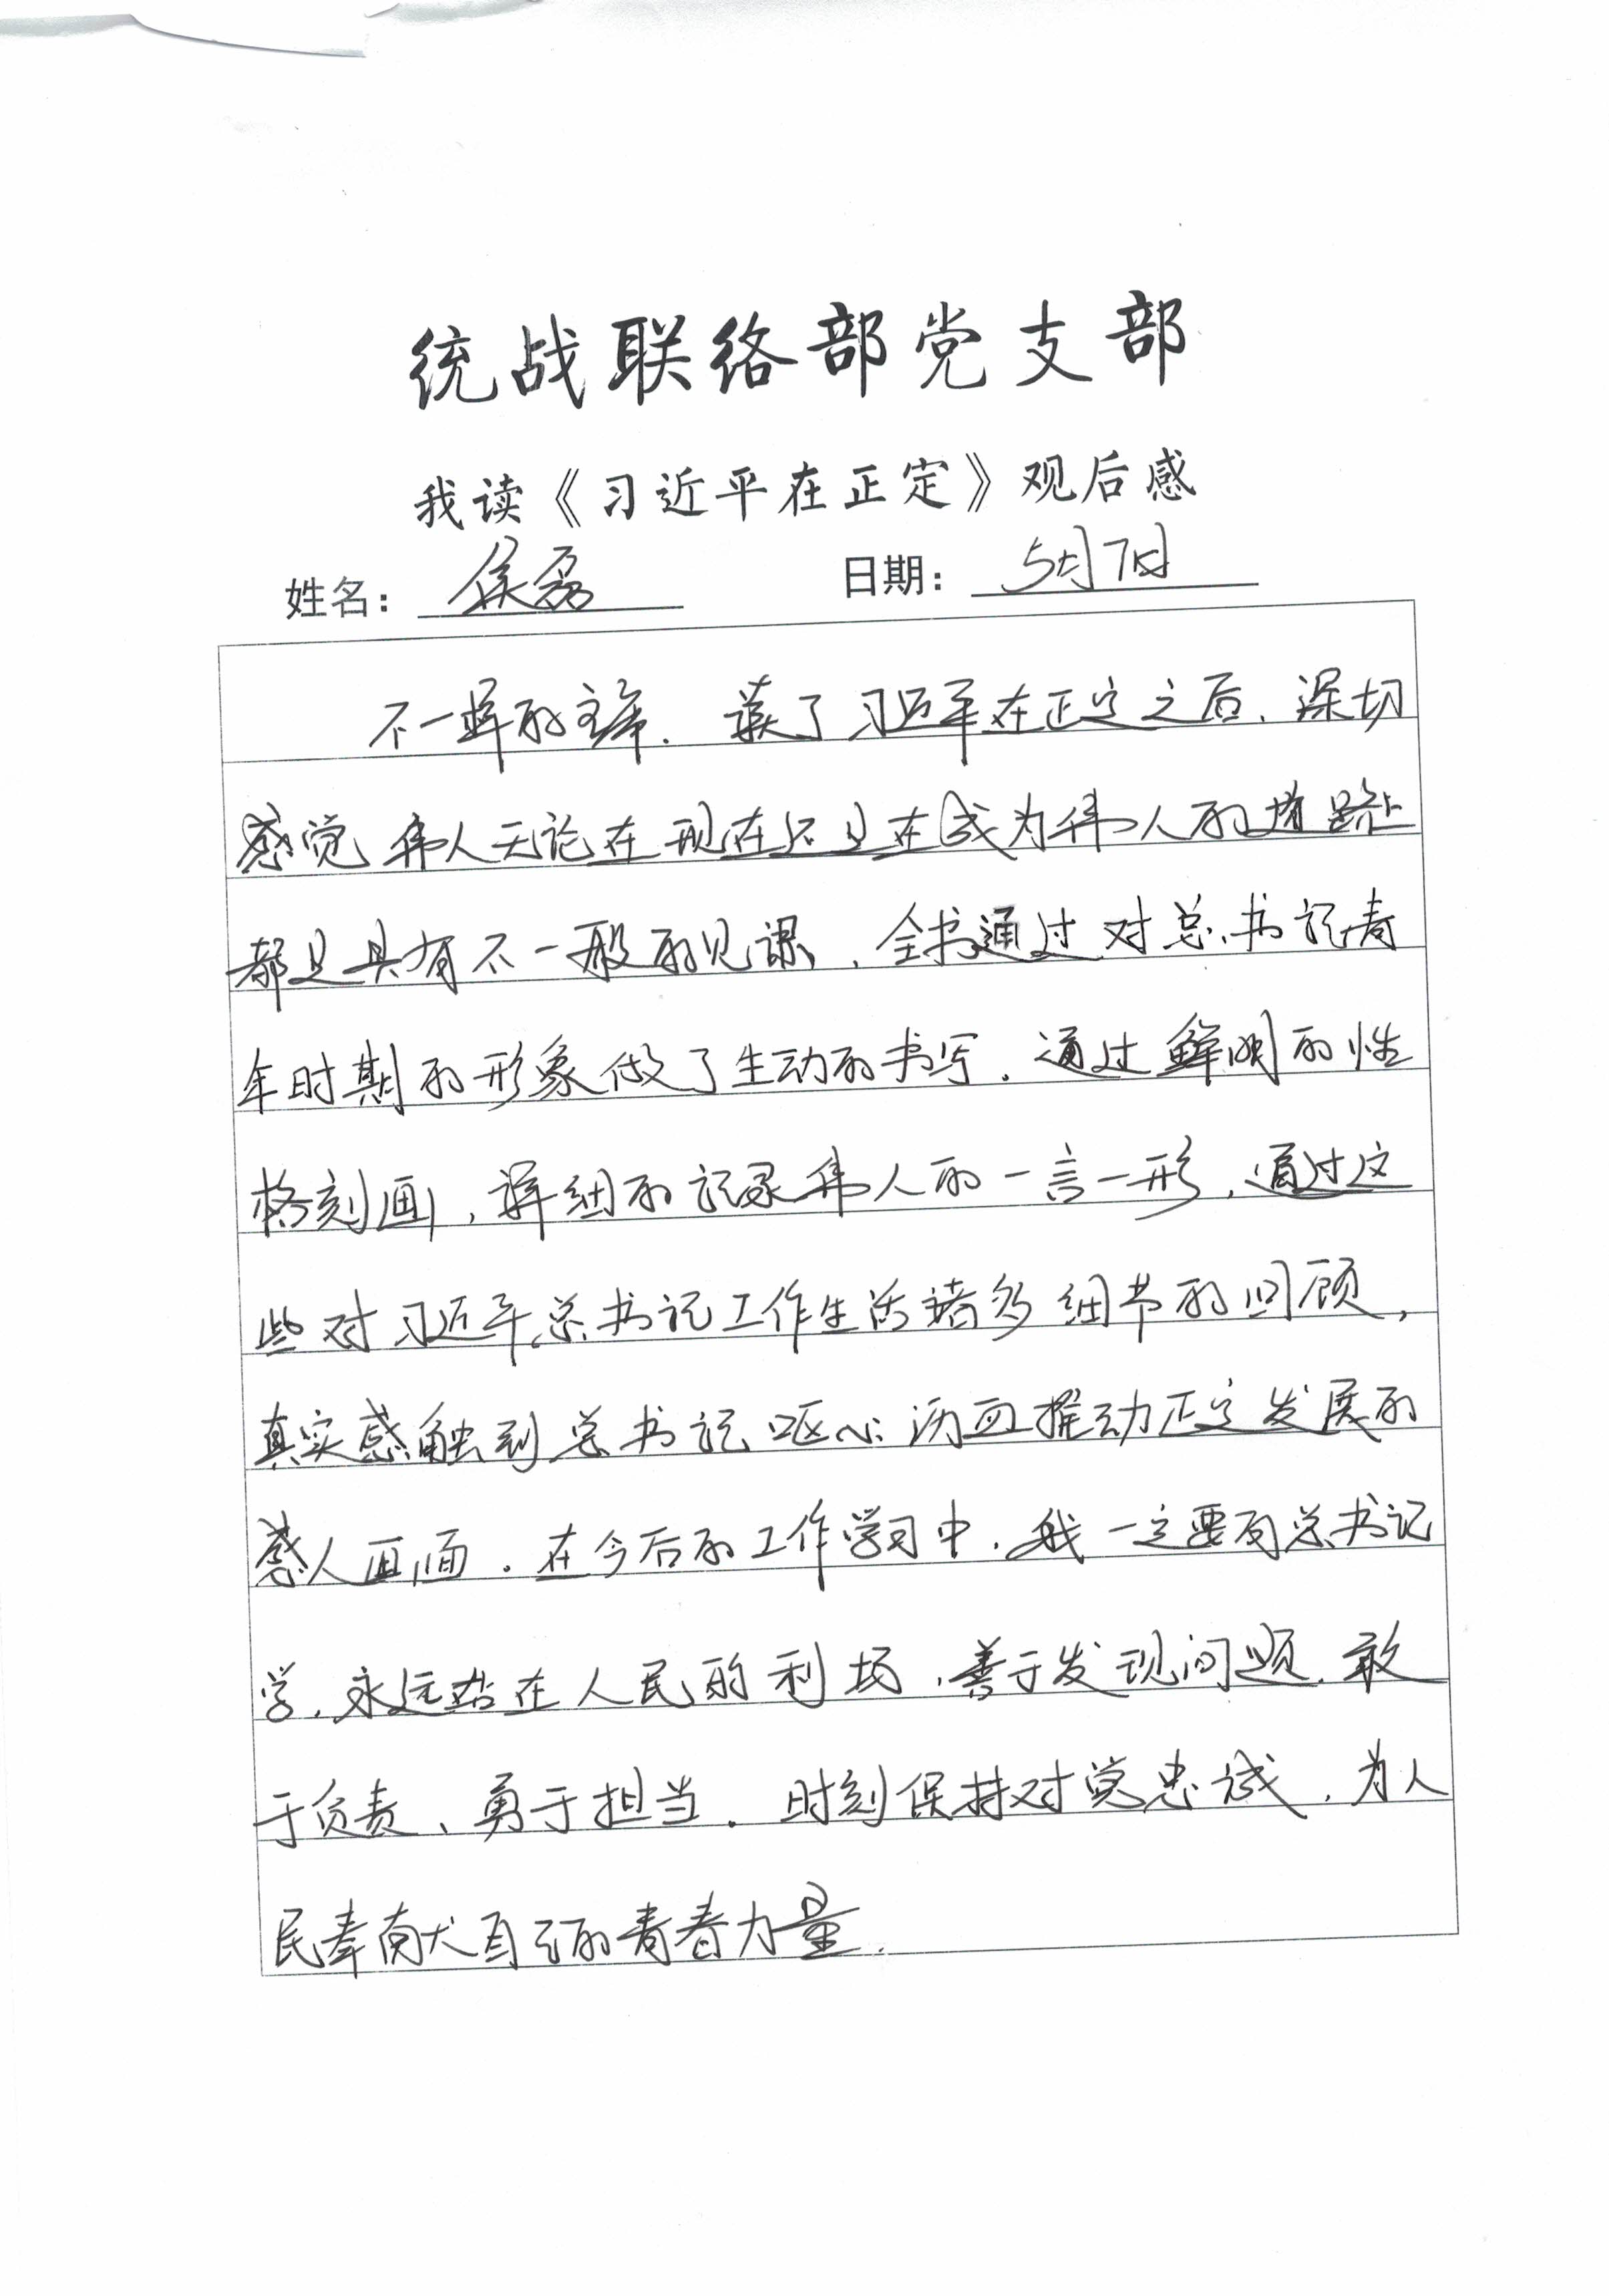 统战联络部党支部
我读《习近平在正定》观后感
姓名：侯磊 日期：5月7日
不一样的 读了习近平在正定之后，深切
感觉伟人无论在现在还是在成为伟人的道路上
都是具有不一般的见识，全书通过对总书记青
年时期的形象做了生动的书写。通过鲜明的性
格刻画，详细的记录伟人的一言一形，通过这
些对习近平总书记工作生活诸多细节的回顾，
真实感触到总书记呕心沥血推动正定发展的
感人画面。在今后的工作学习中，我一定要向总书记
学，永远站在人民的利场，善于发现问题，敢
于负责、勇于担当。时刻保持对党忠诚，为人
民奉献自己的青春力量。